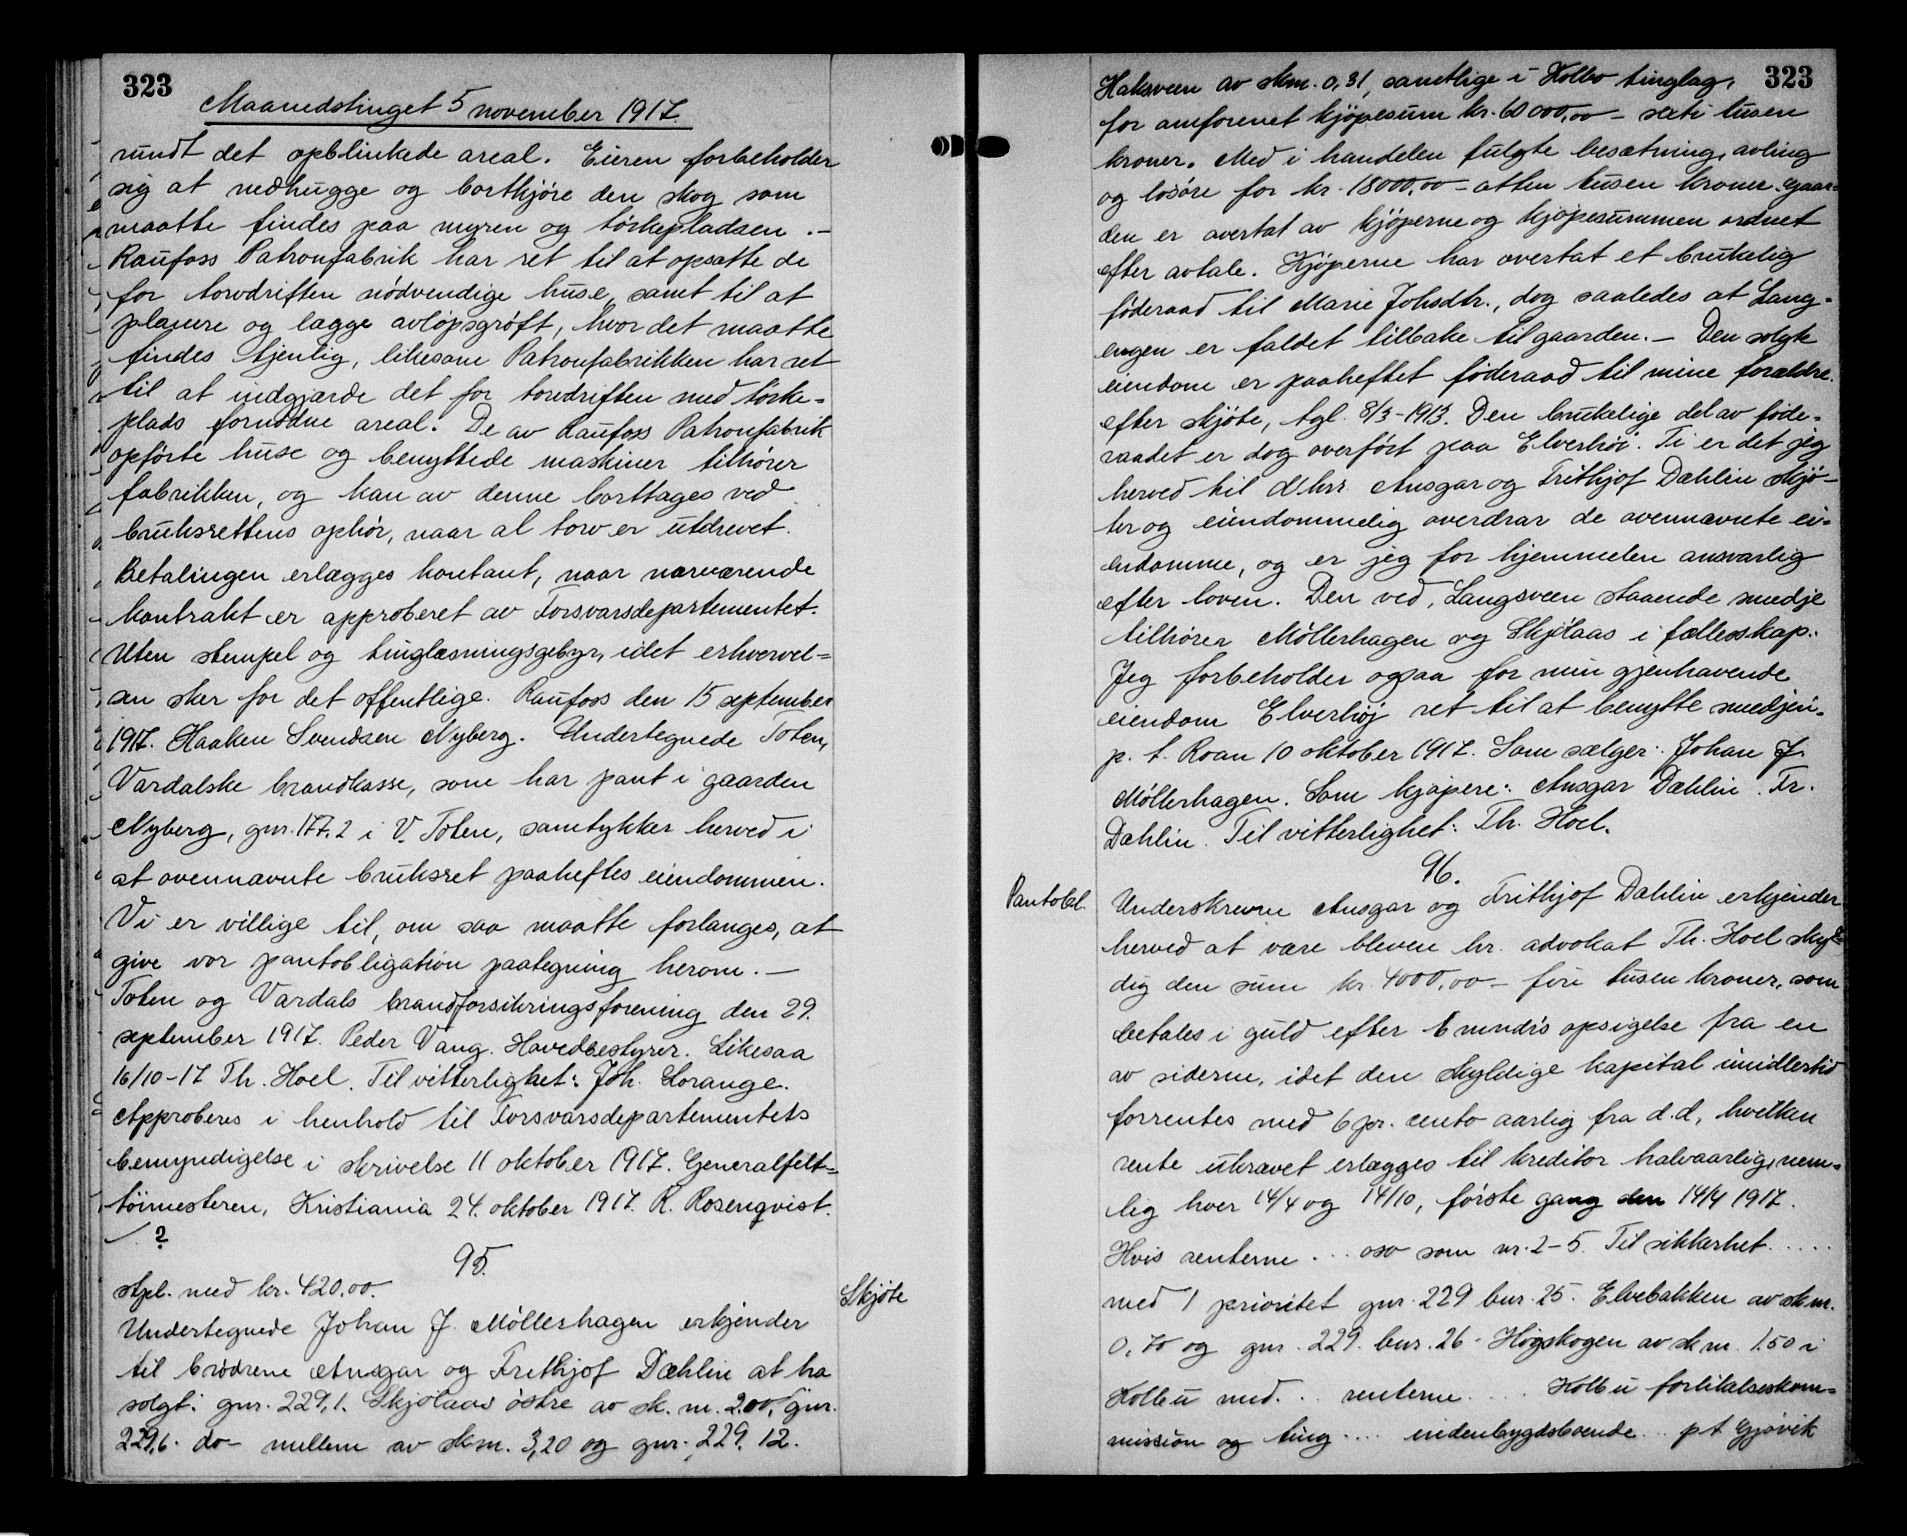 323
Maanedstinget 5 november 1917.
rundt det opblinkede areal. Eieren forbeholder
sig at nedhugge og bortkjöre den skog som
maatte findes paa myren og törkepladsen. -
Raufoss Patronfabrik har ret til at opsætte de
for torvdriften nödvendige huse, samt til at
planere og lægge avlöpsgröft, hvor det maatte
findes tjenlig, likesom Patronfabrikken har ret
til at indgjærde det for torvdriften med törke-
plads fornödne areal. De av Raufoss Patronfabrik
opförte huse og benyttede maskiner tilhörer
fabrikken, og kan av denne borttages ved
bruksrettens ophör, naar al torv er utdrevet.
Betalingen erlægges kontant, naar nærværende
kontrakt er approberet av Forsvarsdepartementet.
Uten stempel og tinglæsningsgebyr, idet erhvervel-
sen sker for det offentlige. Raufoss den 15 september
1917. Haaken Svendsen Nyberg. Undertegnede Toten,
Vardalske brandkasse, som har pant i gaarden
Nyberg, gnr. 177.2 i V. Toten, samtykker herved i
at ovennævnte bruksret paaheftes eiendommen.
Vi er villige til, om saa maatte forlanges, at
give vor pantobligation paategning herom. -
Toten og Vardals brandforsikringsforening den 29.
september 1917. Peder Vang. Hovedbestyrer. Likesaa
16/10-17 Th. Hoel. Til vitterlighet: Joh. Lorange.
Approberes i henhold til Forsvarsdepartementets
bemyndigelse i skrivelse 11 oktober 1917. Generalfelt-
töimesteren, Kristiania 24. oktober 1917. R. Rosenqvist.
?
95.
Skjöte
Stpl. med kr. 420.00.
Undertegnede Johan J. Möllerhagen erkjender
til brödrene Ansgar og Frithjof Dæhlin at ha
solgt: gnr. 229,1. Skjölaas östre av sk. m. 2.00, gnr.
229,6. do- mellem av skm. 3,20 og gnr. 229. 12.
323
Haksveen av skm. 0,31, samtlige i Kolbo tinglag,
for omforenet kjöpesum kr. 60000,00 - seksti tusen
kroner. Med i handelen fulgte besætning, avling
og lösöre for kr. 18000,00 - atten tusen kroner. Gaar-
den er overtat av kjöperne og kjöpesummen ordnet
efter avtale. Kjöperne har overtat et brukelig
föderaad til Marie Johsdtr., dog saaledes at Lang-
engen er faldet tilbake til gaarden. - Den solgte
eiendom er paaheftet föderaad til mine forældre
efter skjöte, tgl. 8/3-1913. Den brukelige del av föde-
raadet er dog overfört paa Elverhöi. Ti er det jeg
herved til dhrr. Ansgar og Frithjof Dæhlin skjö-
ter og eiendommelig overdrar de ovennævnte ei-
endomme, og er jeg for hjemmelen ansvarlig
efter loven. Den ved Langsveen staaende smedje
tilhörer Möllerhagen og Skjölaas i fællesskap.
Jeg forbeholder ogsaa for min gjenhavende
eiendom Elverhöj ret til at benytte smedjen.
p. t. Roan 10 oktober 1917. Som sælger: Johan J.
Möllerhagen. Som kjöpere: Ansgar Dæhlin. Fr.
Dæhlin. Til vitterlighet: Th. Hoel.
96.
Pantobl.
Underskrevne Ansgar og Frithjof Dæhlin erkjender
herved at være bleven hr. advokat Th. Hoel skyl-
dig den sum kr. 4000,00 - fire tusen kroner, som
betales i guld efter 6 mndrs opsigelse fra en
av siderne, idet den skyldige kapital imidlertid
forrentes med 6 pr. cento aarlig fra d.d., hvilken
rente ukrævet erlægges til kreditor halvaarlig, nem-
lig hver 14/4 og 14/10, förste gang den 14/4 1917.
Hvis renterne ... osv som nr. 2-5. Til sikkerhet .....
med 1 prioritet gnr. 229 bnr. 25. Elvebakken av skm.
0,70 og gnr. 229. bnr. 26 - Högskogen av skm. 1.50 i
Kolbu med ... renterne .... Kolbu forlikelseskom-
mission og ting .... indenbygdsboende .. p.t Gjövik